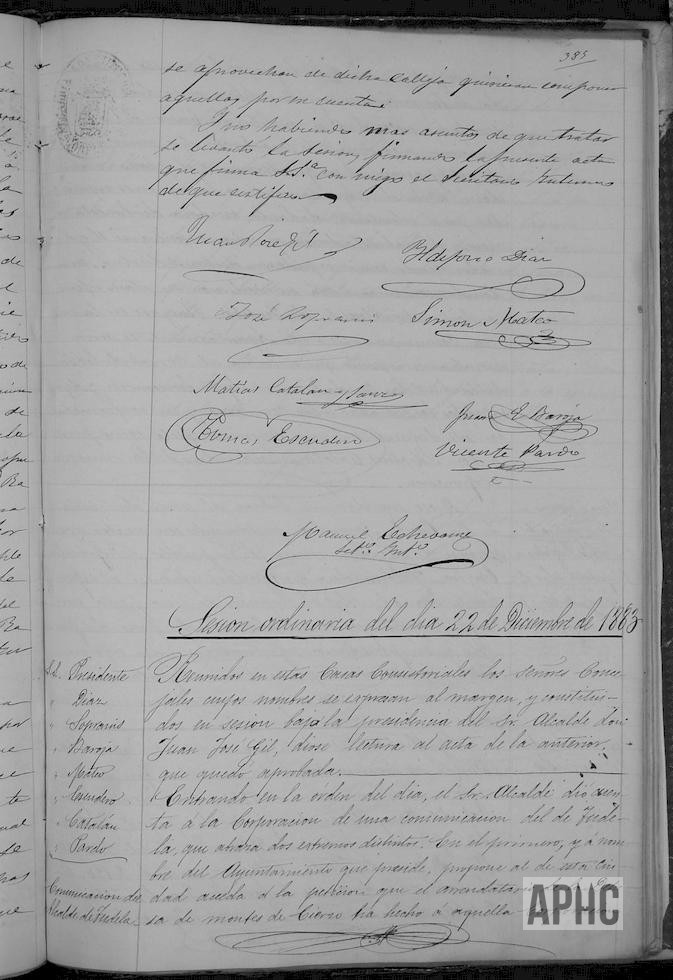 385
se aprovechan de dicha calleja quisieran componer
aquellas por su cuenta.
Y no habiendo mas asuntos de que tratar
se levantó la sesion, firmando la presente acta
que firma S.S.ª con migo el Secretario Interino
de que certifico
Juan José Gil
Ildefonso Diaz
José Sopranis
Simon Mateo
Matias Catalan y Sanz
Juan G Baroja
Tomas Escudero
Vicente Pardo
Manuel Echevarria
Set.º Int.º
Sesion ordinaria del dia 22 de Diciembre de 1883
S.S. Presidente
" Diaz
" Sopranis
" Baroja
" Mateo
" Escudero
" Catalán
" Pardo
Reunidos en estas Casas Consistoriales los señores Conce-
jales cuyos nombres se expresan al margen, y constitui-
dos en sesion bajo la presidencia del Sr. Alcalde don
Juan José Gil, diose lectura al acta de la anterior,
que quedó aprobada.
Comunicacion del
Alcalde de Tudela
Entrando en la orden del dia, el Sr. Alcalde dió cuen-
ta á la Corporacion de una comunicacion del de Tude-
la, que abraza dos extremos distintos. En el primero, y á nom-
bre del Ayuntamiento que preside, propone al de esta Ciu-
dad acceda á la peticion que el arrendatario
sa de montes de Cierzo ha hecho á aquella
APHC